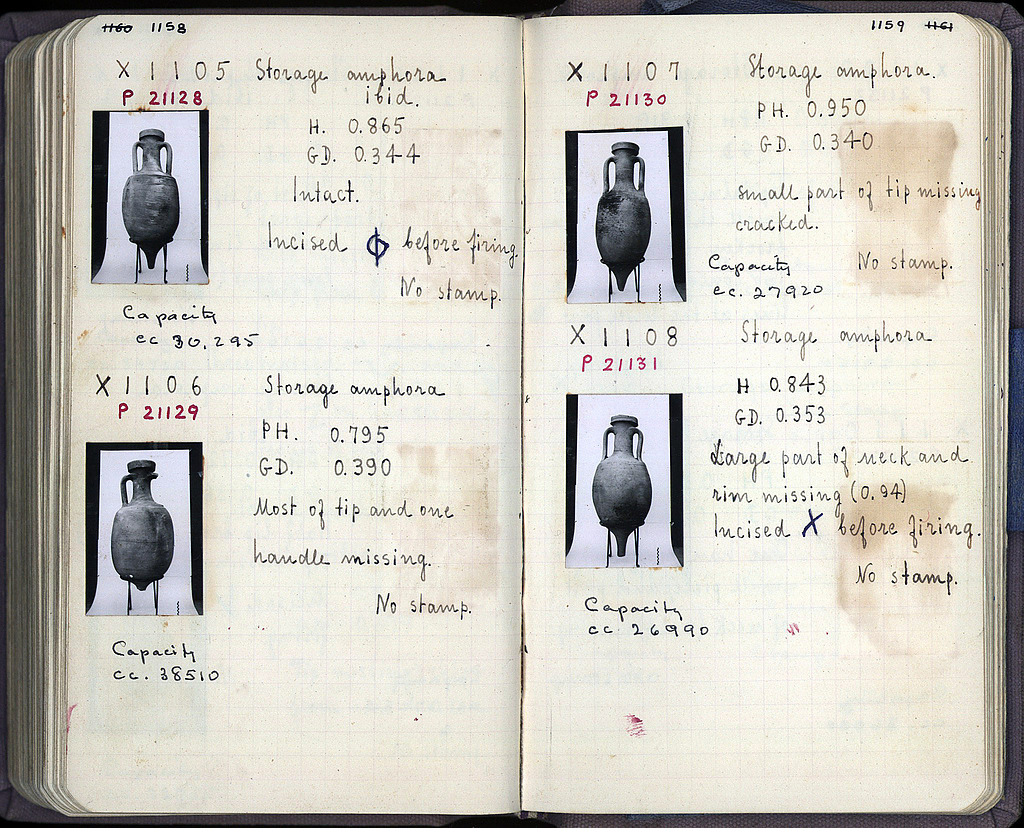 1160 1158
X 1105 Storage amphora
P 21128 ibid.
H. 0.865
GD. 0.344
Intact.
Incised ϕ before firing.
No stamp.
Capacity
cc 30.295
X 1106 Storage amphora
P 21129
PH. 0.795
GD. 0.390
Most of tip and one
handle missing.
No stamp.
Capacity
cc. 38510
1159 1161
X 1107 Storage amphora.
P 21130
PH. 0.950
GD. 0.340
small part of tip missing
cracked.
No stamp.
Capacity
cc. 27920
X 1108 Storage amphora
P 21131
H 0.843
GD. 0.353
Large part of neck and
rim missing (0.94)
Incised X before firing.
No stamp.
Capacity
cc. 26990